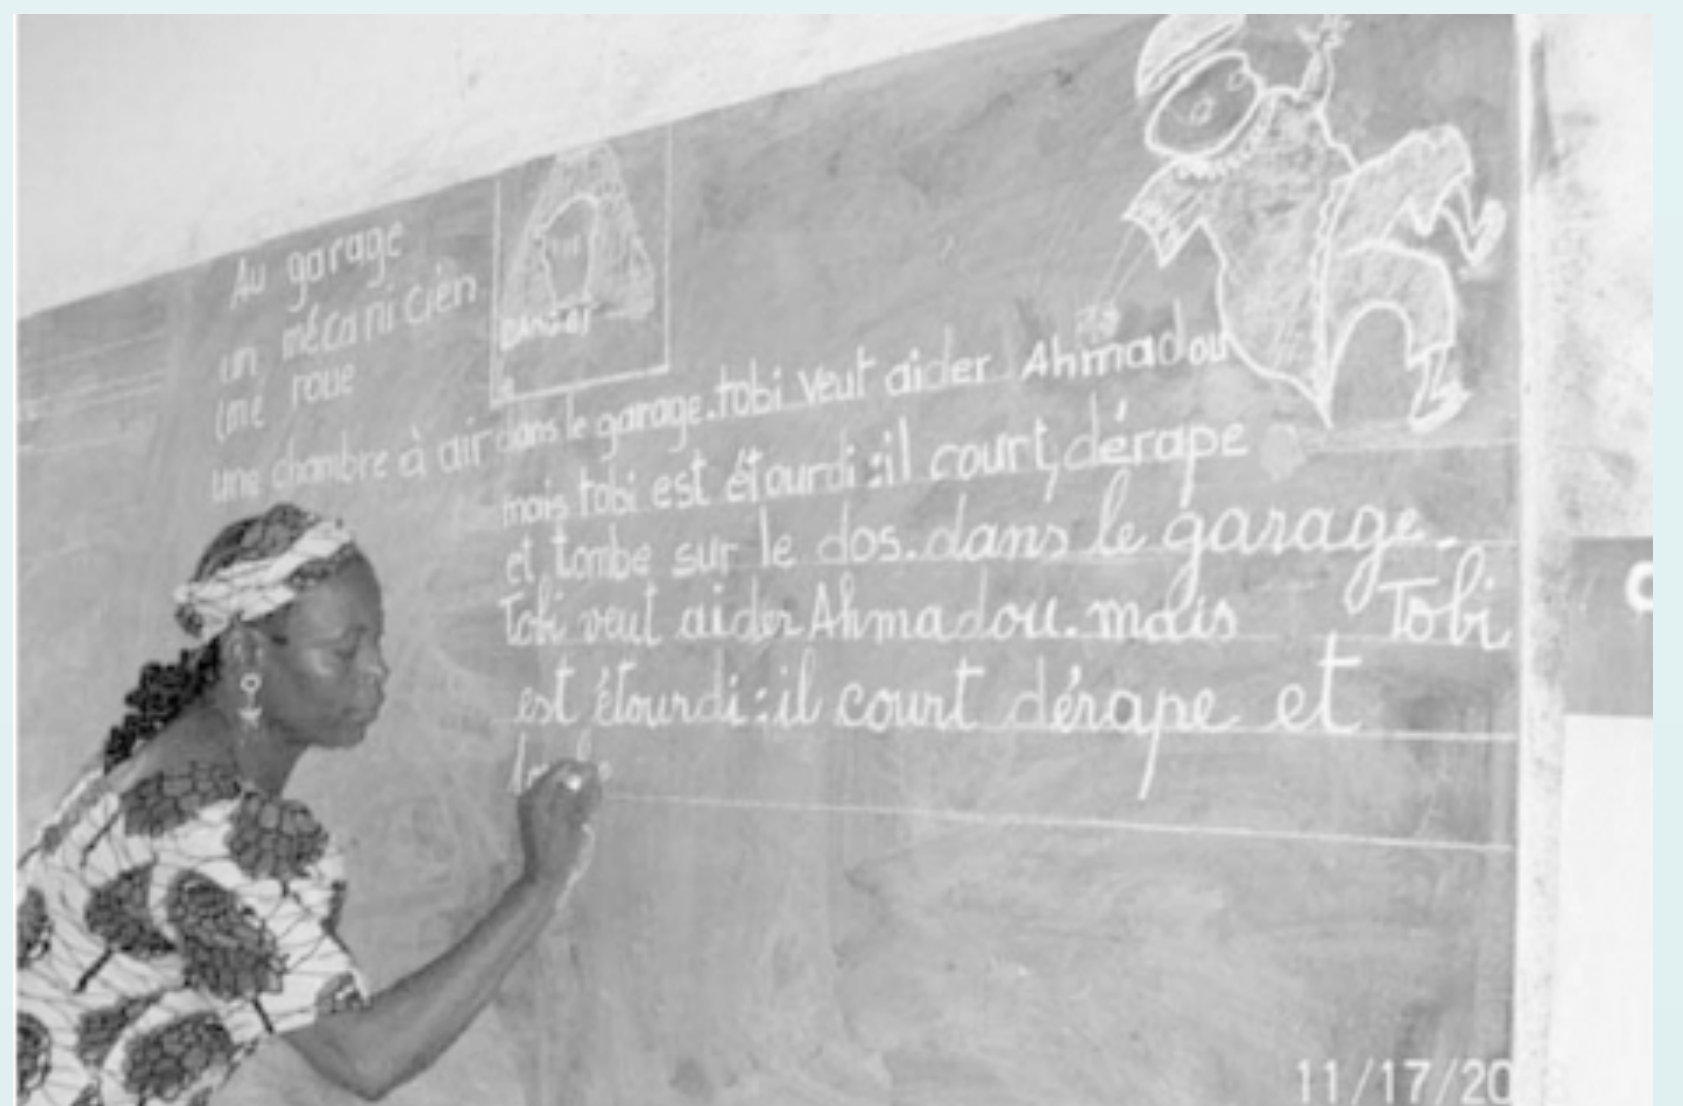 Au garage
un mécanicien
une roue
une chambre à air
Danger
dans le garage. tobi veut aider Ahmadou
mais tobi est étourdi : il court, dérape
et tombe sur le dos. dans le garage.
Tobi veut aider Ahmadou. mais Tobi
est étourdi : il court dérape et
11/17/20